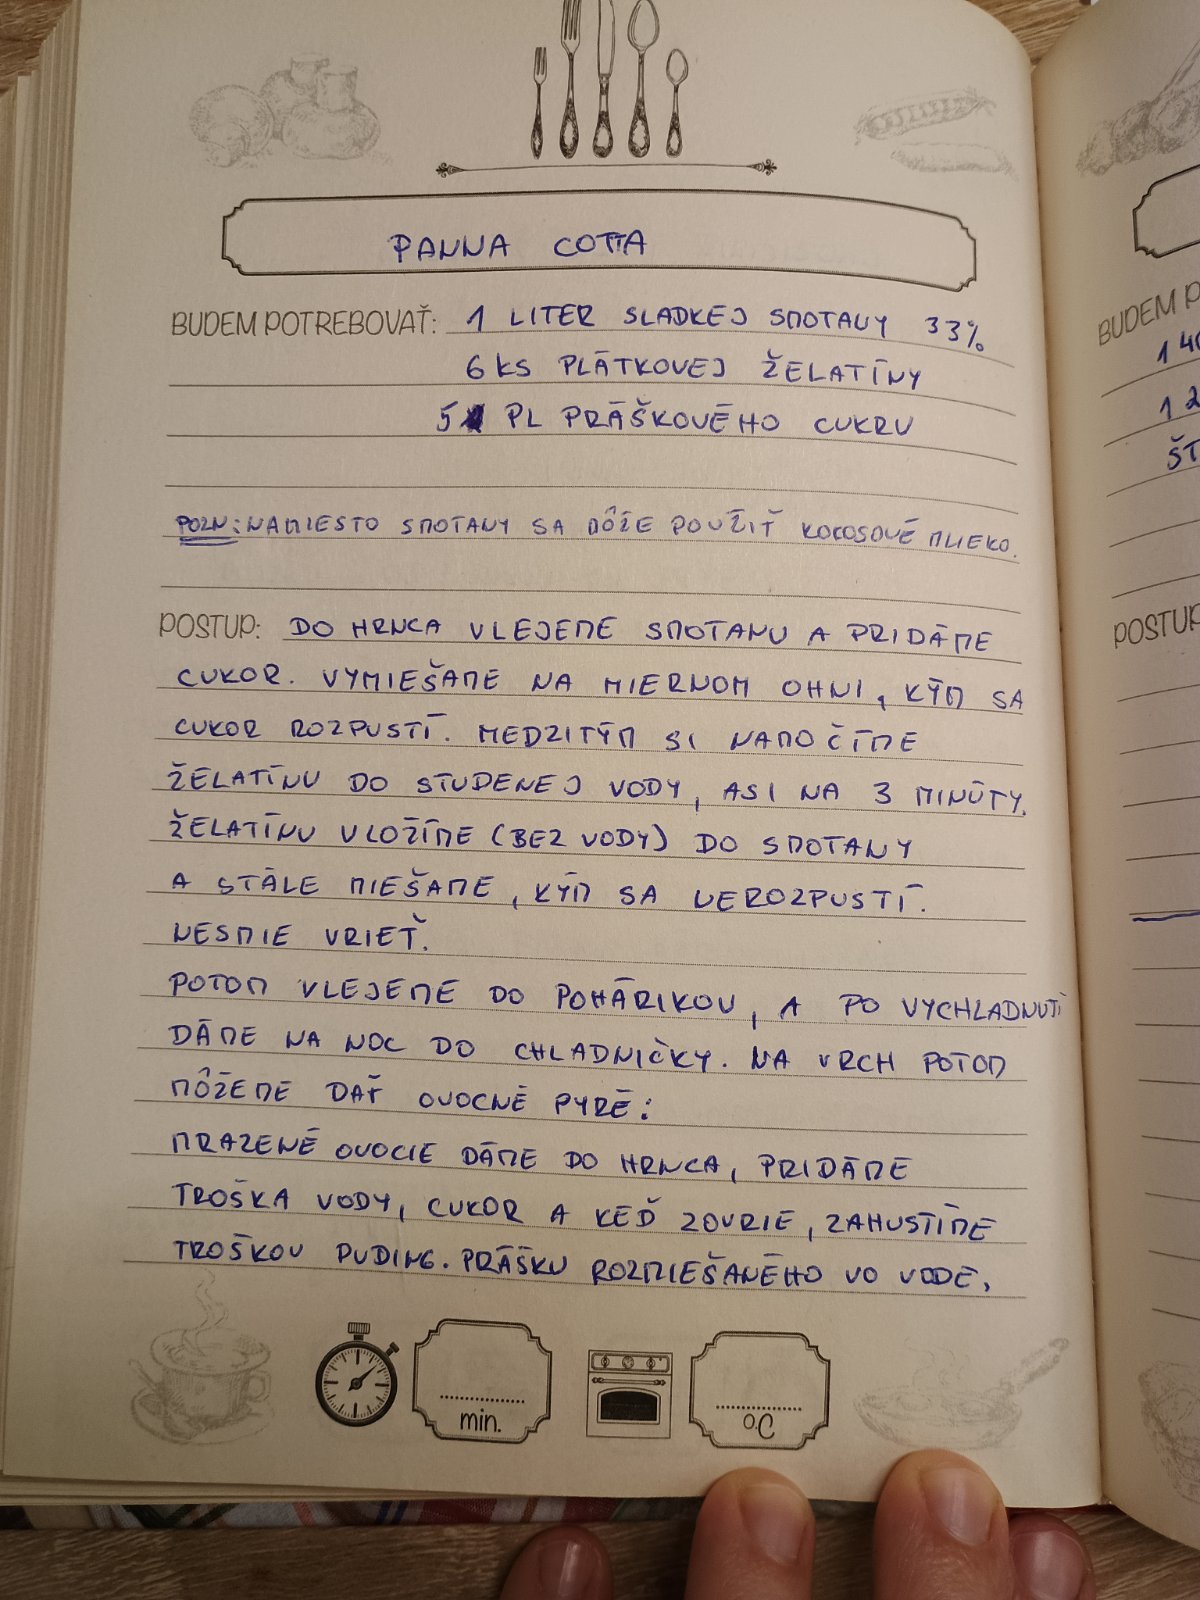 PANNA COTTA
BUDEM POTREBOVAŤ: 1 LITER SLADKEJ SMOTANY 33%
6 KS PLÁTKOVEJ ŽELATÍNY
5 PL PRÁŠKOVÉHO CUKRU
POZN: NAMIESTO SMOTANY SA MÔŽE POUŽIŤ KOKOSOVÉ MLIEKO.
POSTUP: DO HRNCA VLEJEME SMOTANU A PRIDÁME
CUKOR. VYMIEŠAME NA MIERNOM OHNI, KÝM SA
CUKOR ROZPUSTÍ. MEDZITÝM SI NAMOČÍME
ŽELATÍNU DO STUDENEJ VODY, ASI NA 3 MINÚTY.
ŽELATÍNU VLOŽÍME (BEZ VODY) DO SMOTANY
A STÁLE MIEŠAME, KÝM SA NEROZPUSTÍ.
NESMIE VRIEŤ.
POTOM VLEJEME DO POHÁRIKOV, A PO VYCHLADNUTÍ
DÁME NA NOC DO CHLADNIČKY. NA VRCH POTOM
MÔŽEME DAŤ OVOCNÉ PYRÉ:
MRAZENÉ OVOCIE DÁME DO HRNCA, PRIDÁME
TROŠKA VODY, CUKOR A KEĎ ZOVRIE, ZAHUSTÍME
TROŠKOU PUDING. PRÁŠKU ROZMIEŠANÉHO VO VODE.
min.
°C
BUDEM P
1 40
1 2
ŠT
POSTUP